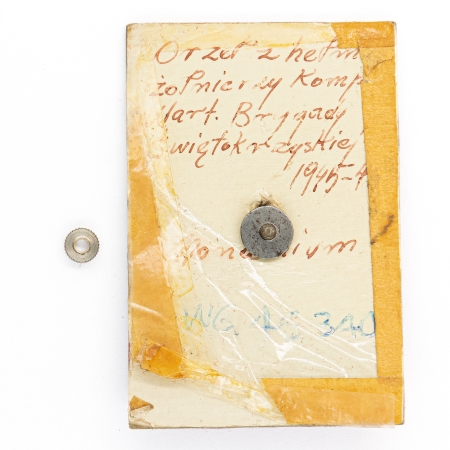 Orzeł z hełm
żołnierzy Komp
Wart. Brygady
więtokrzyskiej
1945-4
340